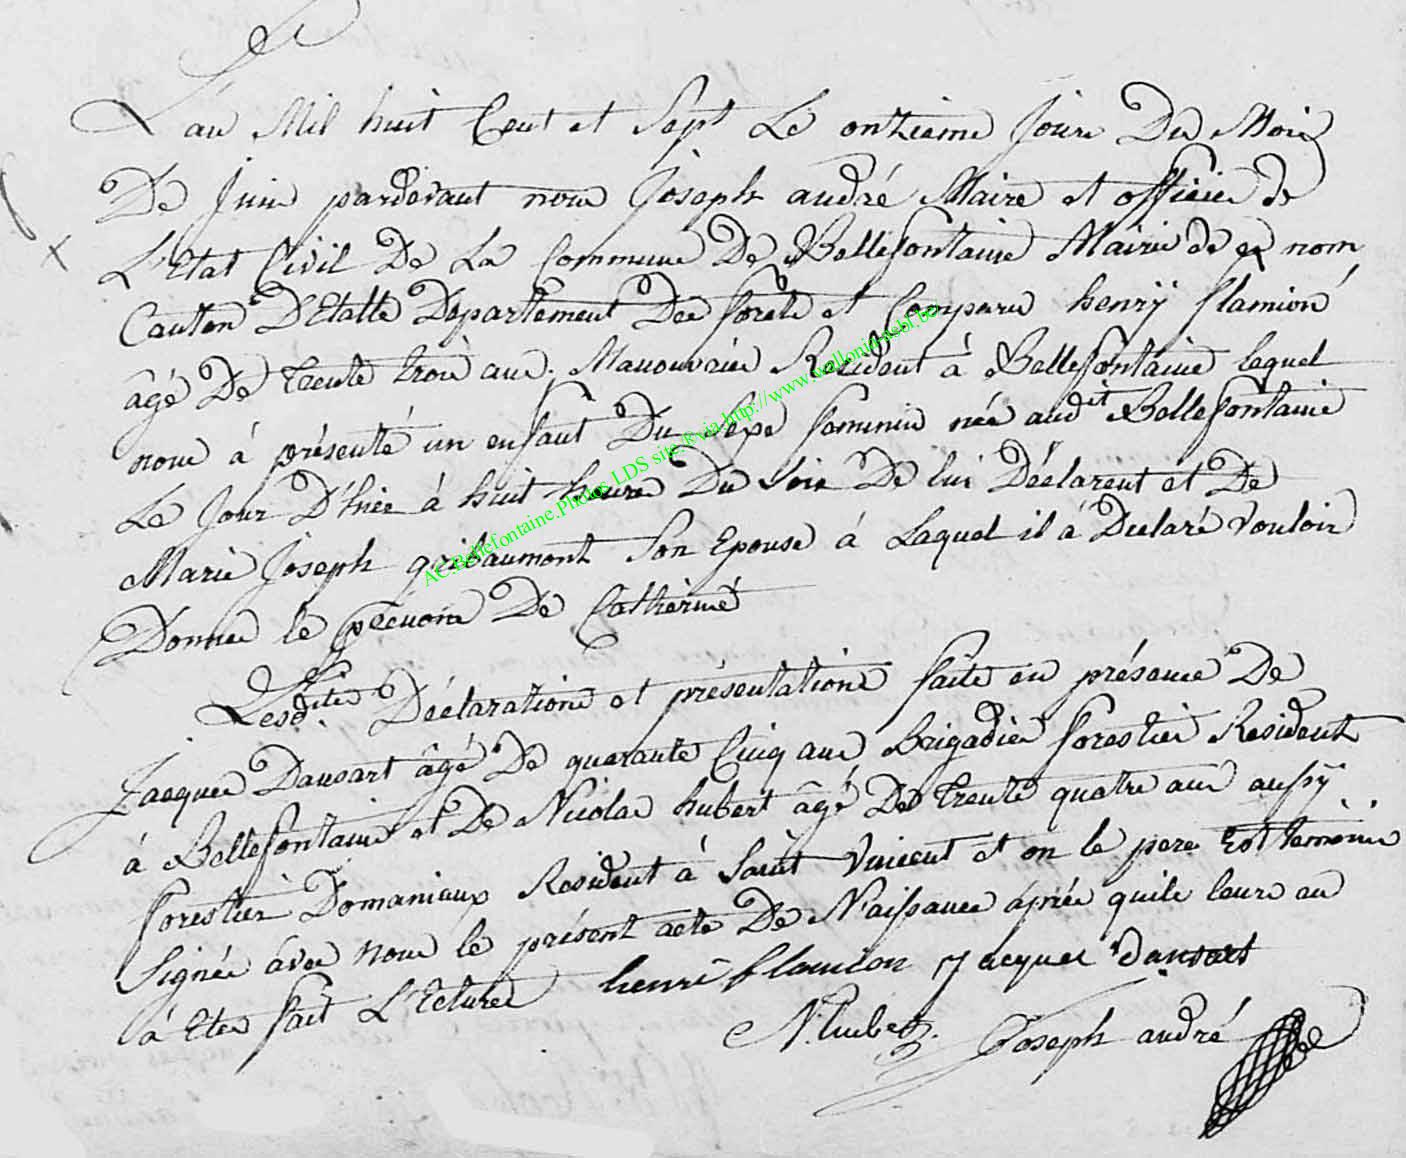 L'an Mil huit Cent et Sept Le onzieme Jour Du Mois
De Juin pardevant nous Joseph andré Maire et officier de
L'Etat Civil De La Commune De Bellefontaine Mairie de ce nom
Canton D'Etalle Département Des forêts et Comparu henrÿ flamion
âgé De trente trois ans. Manouvrier Resident à Bellefontaine lequel
nous à présenté un enfant Du Sexe feminin née audit Bellefontaine
Le Jour D'hier à huit heures Du Soir De lui Déclarent et De
Marie Joseph gribaumont Son Epouse à Laquel il à Declaré Vouloir
Donner le prenom De Catherine
Lesdite Déclarations et présentations faite en présence De
Jacques Dansart âgé De quarante Cinq ans Brigadier forestier Resident
à Bellefontaine et De Nicolas hubert âgé De trente quatre ans aussÿ
forestier Domaniaux Resident à Saint Vincent et on le pere Et temoins
Signés avec nous le présent acte De Naissance après quils leurs an
à Eter fait L'Ectures henri flamion Jacques Dansart
N. hubert. Joseph andré
AC.Bellefontaine.Photos LDS site.®via.http://www.wallonia-asbl.be